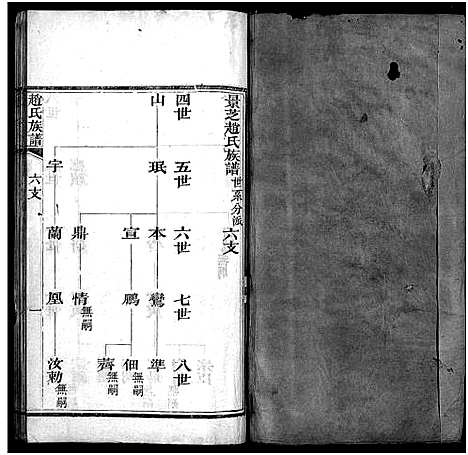 景芝趙氏族譜 世系分派 六支
四世 五世 六世 七世 八世
山 珉 本 鸞 準
宣 鵬 佃無嗣
薺無嗣
鼎 情無嗣
字 蘭 凰 汝勅無嗣
趙氏族譜 六支 一